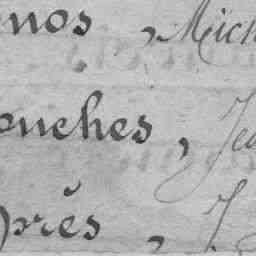 nos, Mich
ouches, Jea
près, J